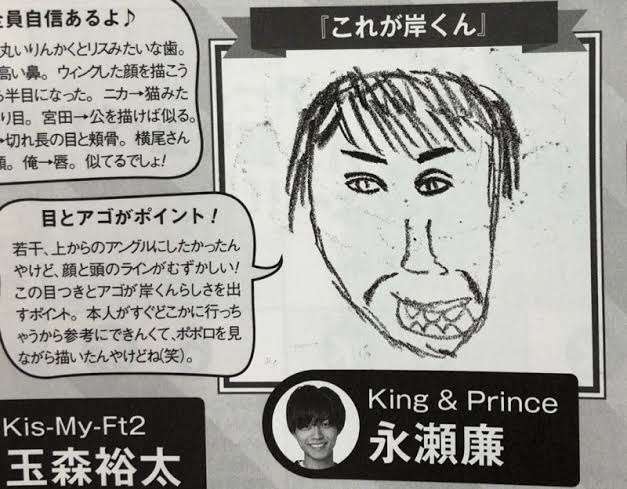 全員自信あるよ♪
丸いりんかくとリスみたいな歯。
高い鼻。ウィンクした顔を描こう
半目になった。ニカ→猫みた
り目。宮田→公を描けば似る。
→切れ長の目と頬骨。横尾さん
顔。俺→唇。似てるでしょ!
『これが岸くん』
目とアゴがポイント!
若干、上からのアングルにしたかったん
やけど、顔と頭のラインがむずかしい!
この目つきとアゴが岸くんらしさを出
すポイント。本人がすぐどこかに行っち
ゃうから参考にできんくて、ポポロを見
ながら描いたんやけどね(笑)。
King & Prince
永瀬廉
Kis-My-Ft2
玉森裕太